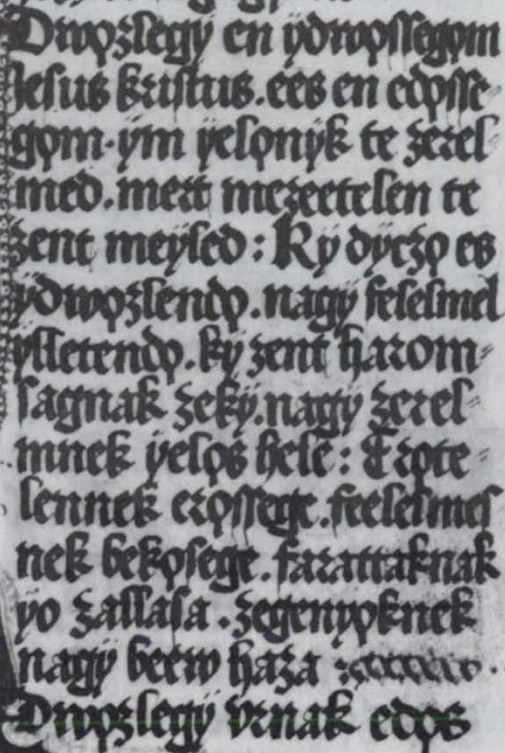 Drvopzlegÿ en ÿdwossegom
Jesus kristus. ees en edosse⸗
gom. ÿm ÿelonÿk te zerel⸗
med. mert mezeetelen te
zent meÿsed : Kÿ dÿczo es
ÿdwozlendo. nagÿ felelmel
ÿlletendo. kÿ zent harom⸗
sagnak zekÿ. nagÿ zerel⸗
mnek ÿelos hele : Erote⸗
lennek erossege. feelelmes
nek bekosege. farattaknak
ÿo zallasa. zegenÿoknek
nagÿ beew haza :
Dwozlegÿ vrnak edos